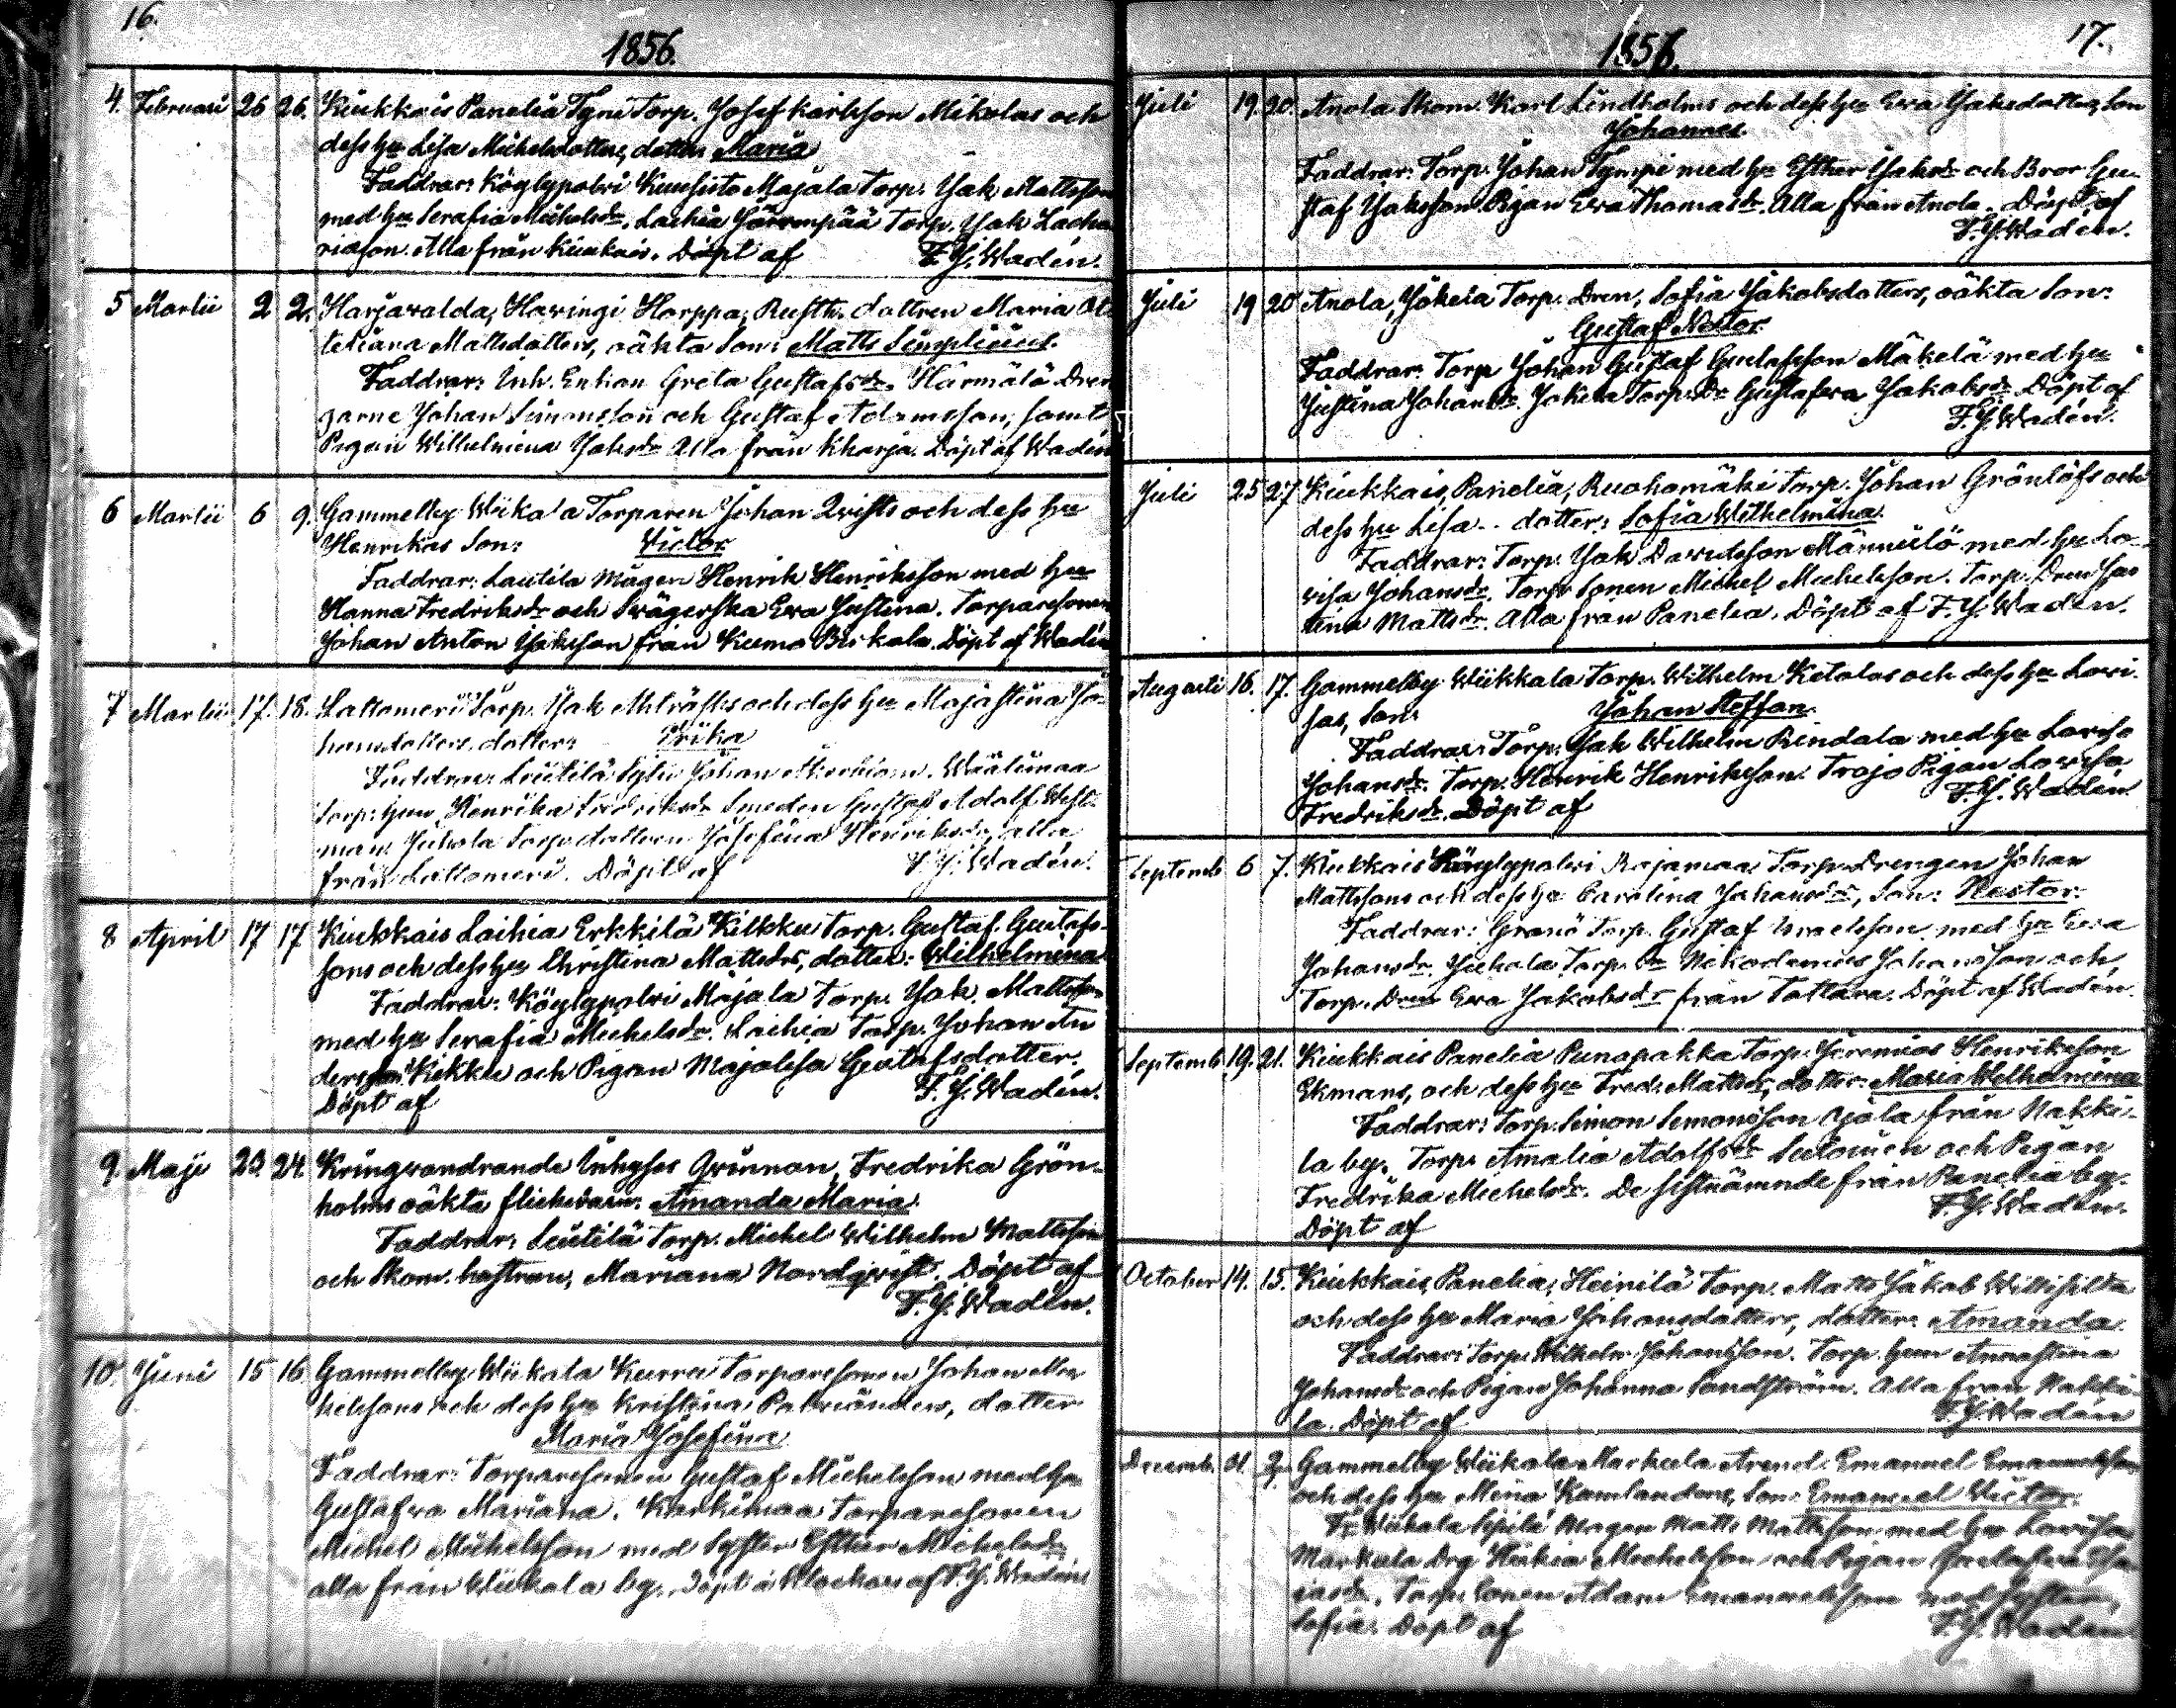 16.
1856.
4. Februari 26 26. Kiukkais Panelia Tyni Torp. Josef Karlsson Mikolas och
dess hu Lisa Michelsdotters, dotter Maria
Faddrar: Köylypolvi Kuusisto Majala Torp. Jak Mattsson
med hu Serafia Michelsdr. Laihia Torp. Jak Zacha
riasson. Alla från Kiukais. Döpt af F. J. Wadén.
5 Martii 2 2. Harjavalda, Havingi Harppa, Rusth. dottren Maria
Mattsdotters, oäkta Son: Matts Simplicius.
Faddrar: Inh. Enkan Greta Gustafsdr. Härmälä Dren
garne Johan Simonsson och Gustaf Adamsson, samt
Pigan Wilhelmina Jaksdr Alla från Kharja. Döpt af Wadén
6 Martii 6 9. Gammelby Wiikala Torparen Johan Qvists och dess hu
Henrikas Son: Victor
Faddrar: Leutila Mågen Henrik Henriksson med hu
Hanna Fredriksdr och Svägerska Eva Justina. Torparesonen
Johan Anton Jaksson från Kumo Birkala. Döpt af Wadén
7 Martii 17. 18. Lattomeri Torp. Jak och dess hu Majastina Jo-
hansdotters, dotter: Erika
Faddrar: Leutilä Johan
Torp: hun Henrika Fredriksdr Smeden Gustaf Adolf West-
man, Juhola Torp dottren Josefina Henriksdr, alla
från Lattomeri. Döpt af F. J. Wadén.
8 April 17 17 Kiukkais Laihia Erkkilä Kikku Torp. Gustaf Gustafs-
sons och dess hu Christina Mattsdrs, dotter: Wilhelmina
Faddrar: Köylypolvi Majala Torp. Jak. Mattsson
med hu Serafia Michelsdr. Laihia Torp. Johan An
dersson Kikku och Pigan Majalisa Gustafsdotter.
Döpt af F. J. Wadén.
9. Maji 23. 24. Kringvandrande Inhyses Qvinnan, Fredrika Grön-
holms oäkta flickebarn: Amanda Maria
Faddrar: Leutilä Torp. Michel Wilhelm Mattsson
och Skom. hustrun, Mariana Nordqvist. Döpt af
F. J. Wadén.
10. Juni 15 16. Gammelby Wiikala Kurra Torparesonen Johan Mi
chelssons och dess hu Kristina dotter
Maria Josefina
Faddrar: Torparesonen Gustaf Michelsson med hu
Gustafva Mariana. Karkimaa Torparesonen
Michel Michelsson med Syster Esther Michelsdr
alla från Wiikala by. Döpt af F. J. Wadén
1856. 17.
Juli 19. 20. Anola Skom. Karl Lindholms och dess hu Eva Jaksdotters, Son
Johannes.
Faddrar: Torp. Johan Tympi med hu Esther Jaksdr och Bror Gu-
staf Jaksson. Pigan Eva Thomasdr. Alla från Anola. Döpt af
F. J. Wadén.
Juli 19 20 Anola, Jokela Torp. Dren, Sofia Jakobsdotters, oäkta Son:
Gustaf Nestor
Faddrar: Torp Johan Gustaf Gustafsson Mäkelä med hu
Justina Johansdr. Jokela Torp. Dr Gustafva Jakobsdr. Döpt af
F. J. Wadén.
Juli 25 27 Kiukkais, Panelia, Ruohomäki Torp. Johan Grönlöfs och
dess hu Lisa.. dotter: Sofia Wilhelmina
Faddrar: Torp. Jak Davidsson Männilö med hu Lo-
visa Johansdr. Torp: Sonen Michel Michelsson. Torp. Dren Jus
tina Mattsdr. Alla från Panelia. Döpt af F. J. Wadén.
Augusti 16. 17. Gammelby Wiikkala Torp. Wilhelm Ketolas och dess hu Lovi-
sas, Son: Johan Steffan
Faddrar: Torp. Jak Wilhelm Rindala med hu Lovisa
Johansdr. Torp. Henrik Henriksson. Trojo Pigan Lovisa
Fredriksdr. Döpt af F. J. Wadén
Septemb 6 7. Kiukkais Köylypolvi Rajamaa Torp. Drengen Johan
Mattssons och dess hu Carolina Johansdrs, Son: Nestor.
Faddrar: Granö Torp. Gustaf Israelsson med hu Eva
Johansdr. Juhola Torp. Nikodemus Johansson och
Torp. Dren Eva Jakobsdr från Tattara. Döpt af Wadén.
Septemb 19. 21. Kiukkais Panelia Punapakka Torp. Jeremias Henriksson
Ekmans, och dess hu Fred. Mattsdr, dotter: Maria Wilhelmina
Faddrar: Torp. Simon Simonsson Ojala från Nakki-
la by. Torp. Amalia Adolfsdr och Pigan
Fredrika Michelsdr. De sistnämnde från Panelia by.
Döpt af F. J. Wadén.
October 14. 15. Kiukkais, Panelia, Heinilä Torp. Matts Jakob
och dess hu Maria Johansdotters, dotter: Amanda
Faddrar: Torp. Wilhelm Johansson. Torp. hun Annastina
Johansdr och Pigan Johanna Sandström. Alla från Nakki-
la. Döpt af F. J. Wadén
Decemb. Gammelby Wiikala Markula Arend. Emanuel Emanuelssons
och dess hu Mina Son: Emanuel Victor.
Fr. Wiikala Mågen Matts Mattsson med hu Lovisa
Markula Drg Michelsson och Pigan Gustafva
Torp. Sonen Adam Emanuelsson med Syster
Sofia. Döpt af F. J. Wadén